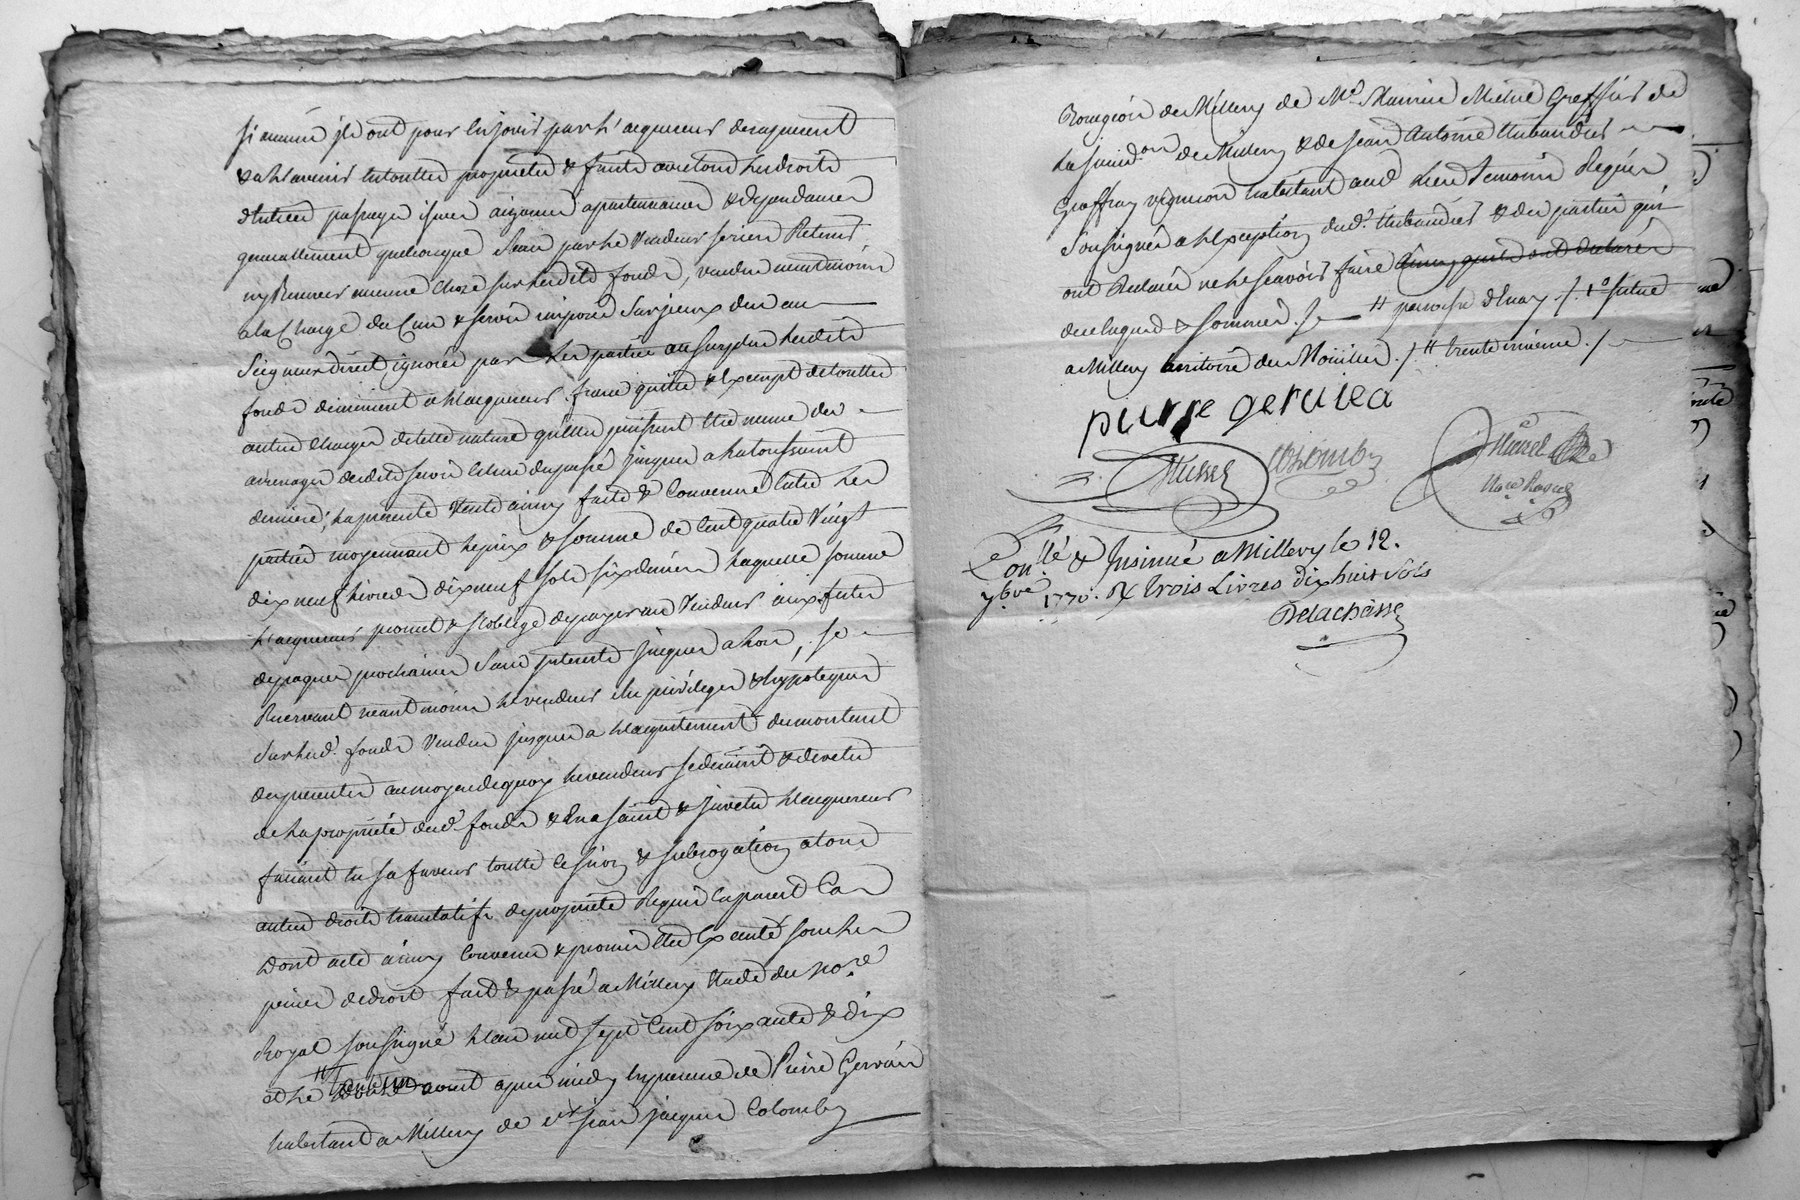 si aucuns ils ont pour en jouir par l'acquereur desapresent
& a l'avenir en toutte proprieté & fruits avec tous les droits
d'entrées passages issues aizances apartenances & dependances
generallement quelconque sans par le Vendeur se rien Retenir
ny Reserver aucune chose sur lesdits fonds, vendus neantmoins
a la Charge du Cens & servis imposés sur jceux deus au
Seigneur direct ignorés par les parties au surplus lesdits
fonds demeurent a l'acquereur franc quitte & Exempt de touttes
autres charges de telle nature qu'elles puissent etre meme des
arrerages desdits servis échus du passé jusques a la toussaint
derniere, la presente Vente ainsy faite & Convenue entre les
parties moyennant le prix & somme de Cent quatre Vingt
dix neuf livres dix neuf sols six deniers laquelle somme
l'acquereur promet & s'oblige de payer au Vendeur aux fetes
de paques prochaines Sans jnterets jusques alors, se
Reservant neantmoins le vendeur les privileges & hypoteques
sur lesd. fonds Vendus jusques a l'acquittement du montant
des presentes au moyen de quoy le vendeur se demet & devetu
de la proprieté desd. fonds & En a saisit & jnvetu l'acquereur
faisant en sa faveur toutte cession & subrogation a tous
autres droits translatifs de proprieté Requis En pareil Cas
dont acte ainsy convenu & promis etre Executé sous les
peines de droit fait & passé a Millery Etude du no.re
Royal soussigné l'an mil sept Cent soixante & dix
et le avant apres midy En presence de Pierre Gervais
habitant a Millery de sr jean jacques Colomby
Bourgeois de Millery de Me Maurice Greffier de
la jurid.on de Millery & de Jean Antoine Thibaudier
Geoffray vigneron habitant aud. lieu temoins Requis
Soussignés a l'Exception dud. Thibaudier & des parties qui
ont Declaré ne le scavoir faire ainsy qu'ils ont declaré
de ce Enquis & sommés. /. # paroisse d' /. 1o situé
a Millery territoire des Moüilles. / # trente unieme. /
pierre gerviea
Mussel Colomby
No.re Royal
Con.llé & Insinué a Millery le 12.
9bre 1770. R/ trois Livres Dix huit sols
Delachasse